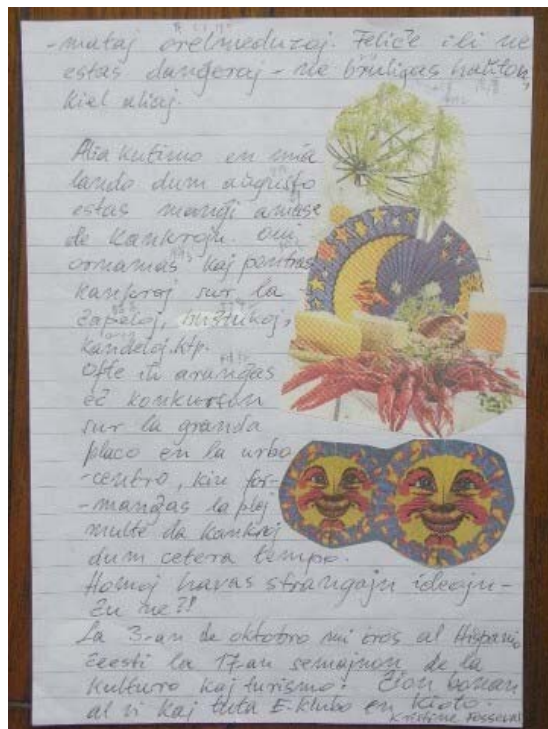 -mataj orelmeduzoj. Feliĉe ili ne
estas danĝeraj - ne bruligas haŭton,
kiel aliaj.
Alia kutimo en mia
lando dum aŭgusto
estas manĝi amase
de kankrojn. Oni
ornamas kaj pentras
kankroj sur la
ĉapeloj, buŝtukoj,
kandeloj ktp.
Ofte ili aranĝas
eĉ konkurson
sur la granda
placo en la urbo
-centro, kiu for-
-manĝas la plej
multe da kankroj
dum cetera tempo.
Homoj havas strangajn ideojn -
ĉu ne?!
La 3-an de oktobro mi iros al Hispanio
ĉeesti la 17-an semajnon de la
kulturo kaj turismo. Ĉion bonan
al vi kaj tuta E-klubo en Kioto.
Kristine